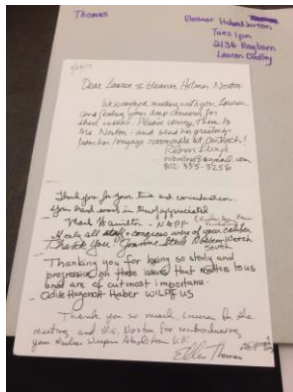 Thomas
Eleanor Holmes Norton
Tues 1pm
2136 Rayburn
Lauren
Dear Lauren & Eleanor Holmes Norton:
We so enjoyed meeting with you, Lauren
and feeling your deep concern for
shared issues. Please convey them to
Ms. Norton - and send her greetings
from her
Robin Lloyd
802-355-3256
Thank you for your time and consideration.
Your hard work is truly appreciated
Mark
If only all staff & congress were of your caliber
Thank You
Nuclear Watch
South
Thanking you for being so steady and
progressive on these issues that matter to us
and are of utmost importance.
Odile Hugonot Haber WILPF US
Thank you so much, Lauren for the
meeting and Ms. Norton for reintroducing
your Nuclear Weapons Abolition
Ellen Thomas